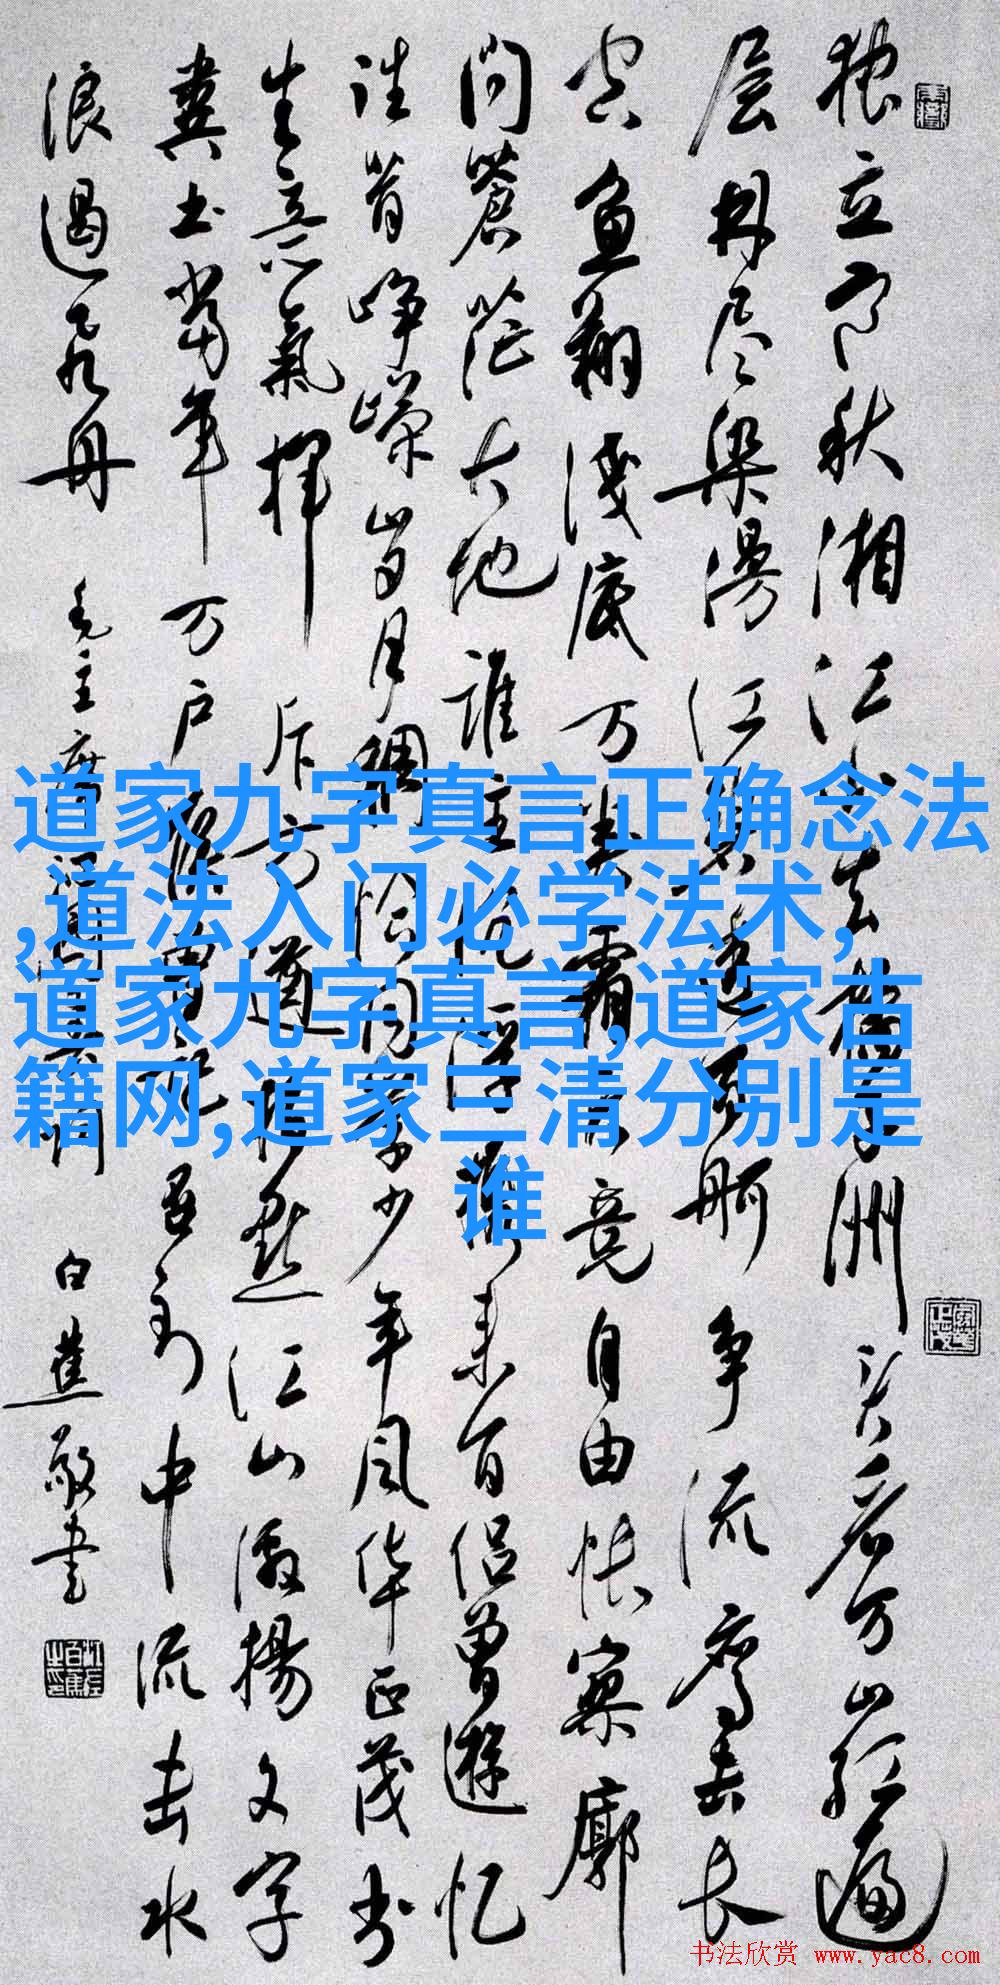 道家九字真言正确念法
,道法入门必学法术,
道家九字真言,道家古
籍网,道家三清分别是
谁
独立寒秋湘江北去橘子洲头看万山红遍
层林尽染漫江碧透百舸争流鹰击长
空鱼翔淺底万类霜天竞自由怅寥廓
问蒼茫大地谁主沉浮携来百侣曾遊忆
往昔峥嵘岁月稠恰同学少年风华正茂书
生意氣挥斥方遒指点江山激揚文字
粪土当年万户侯曾记否到中流击水
浪遏飞舟 毛主席 白蕉敬書
书法欣赏 www.yac8.com